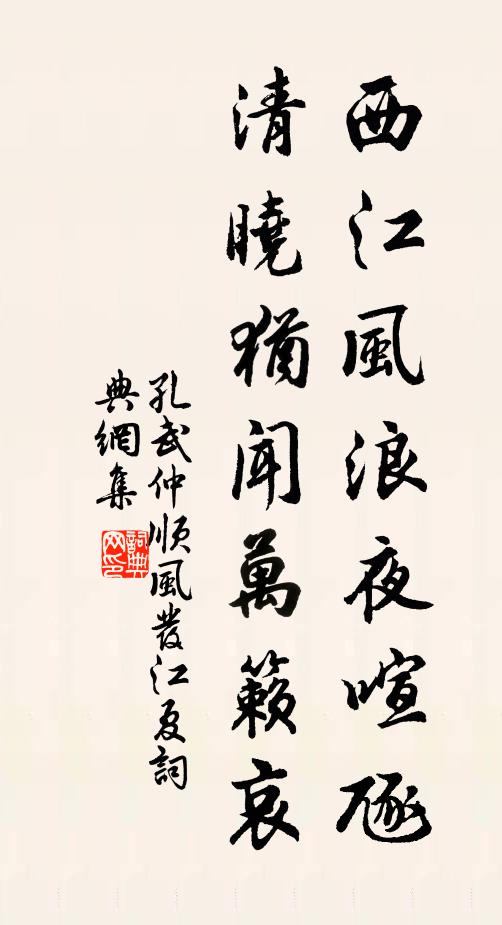 西江風浪夜喧豗
清曉猶聞萬籟哀
孔武仲順風發江夏詞
典網集
詞典
网印